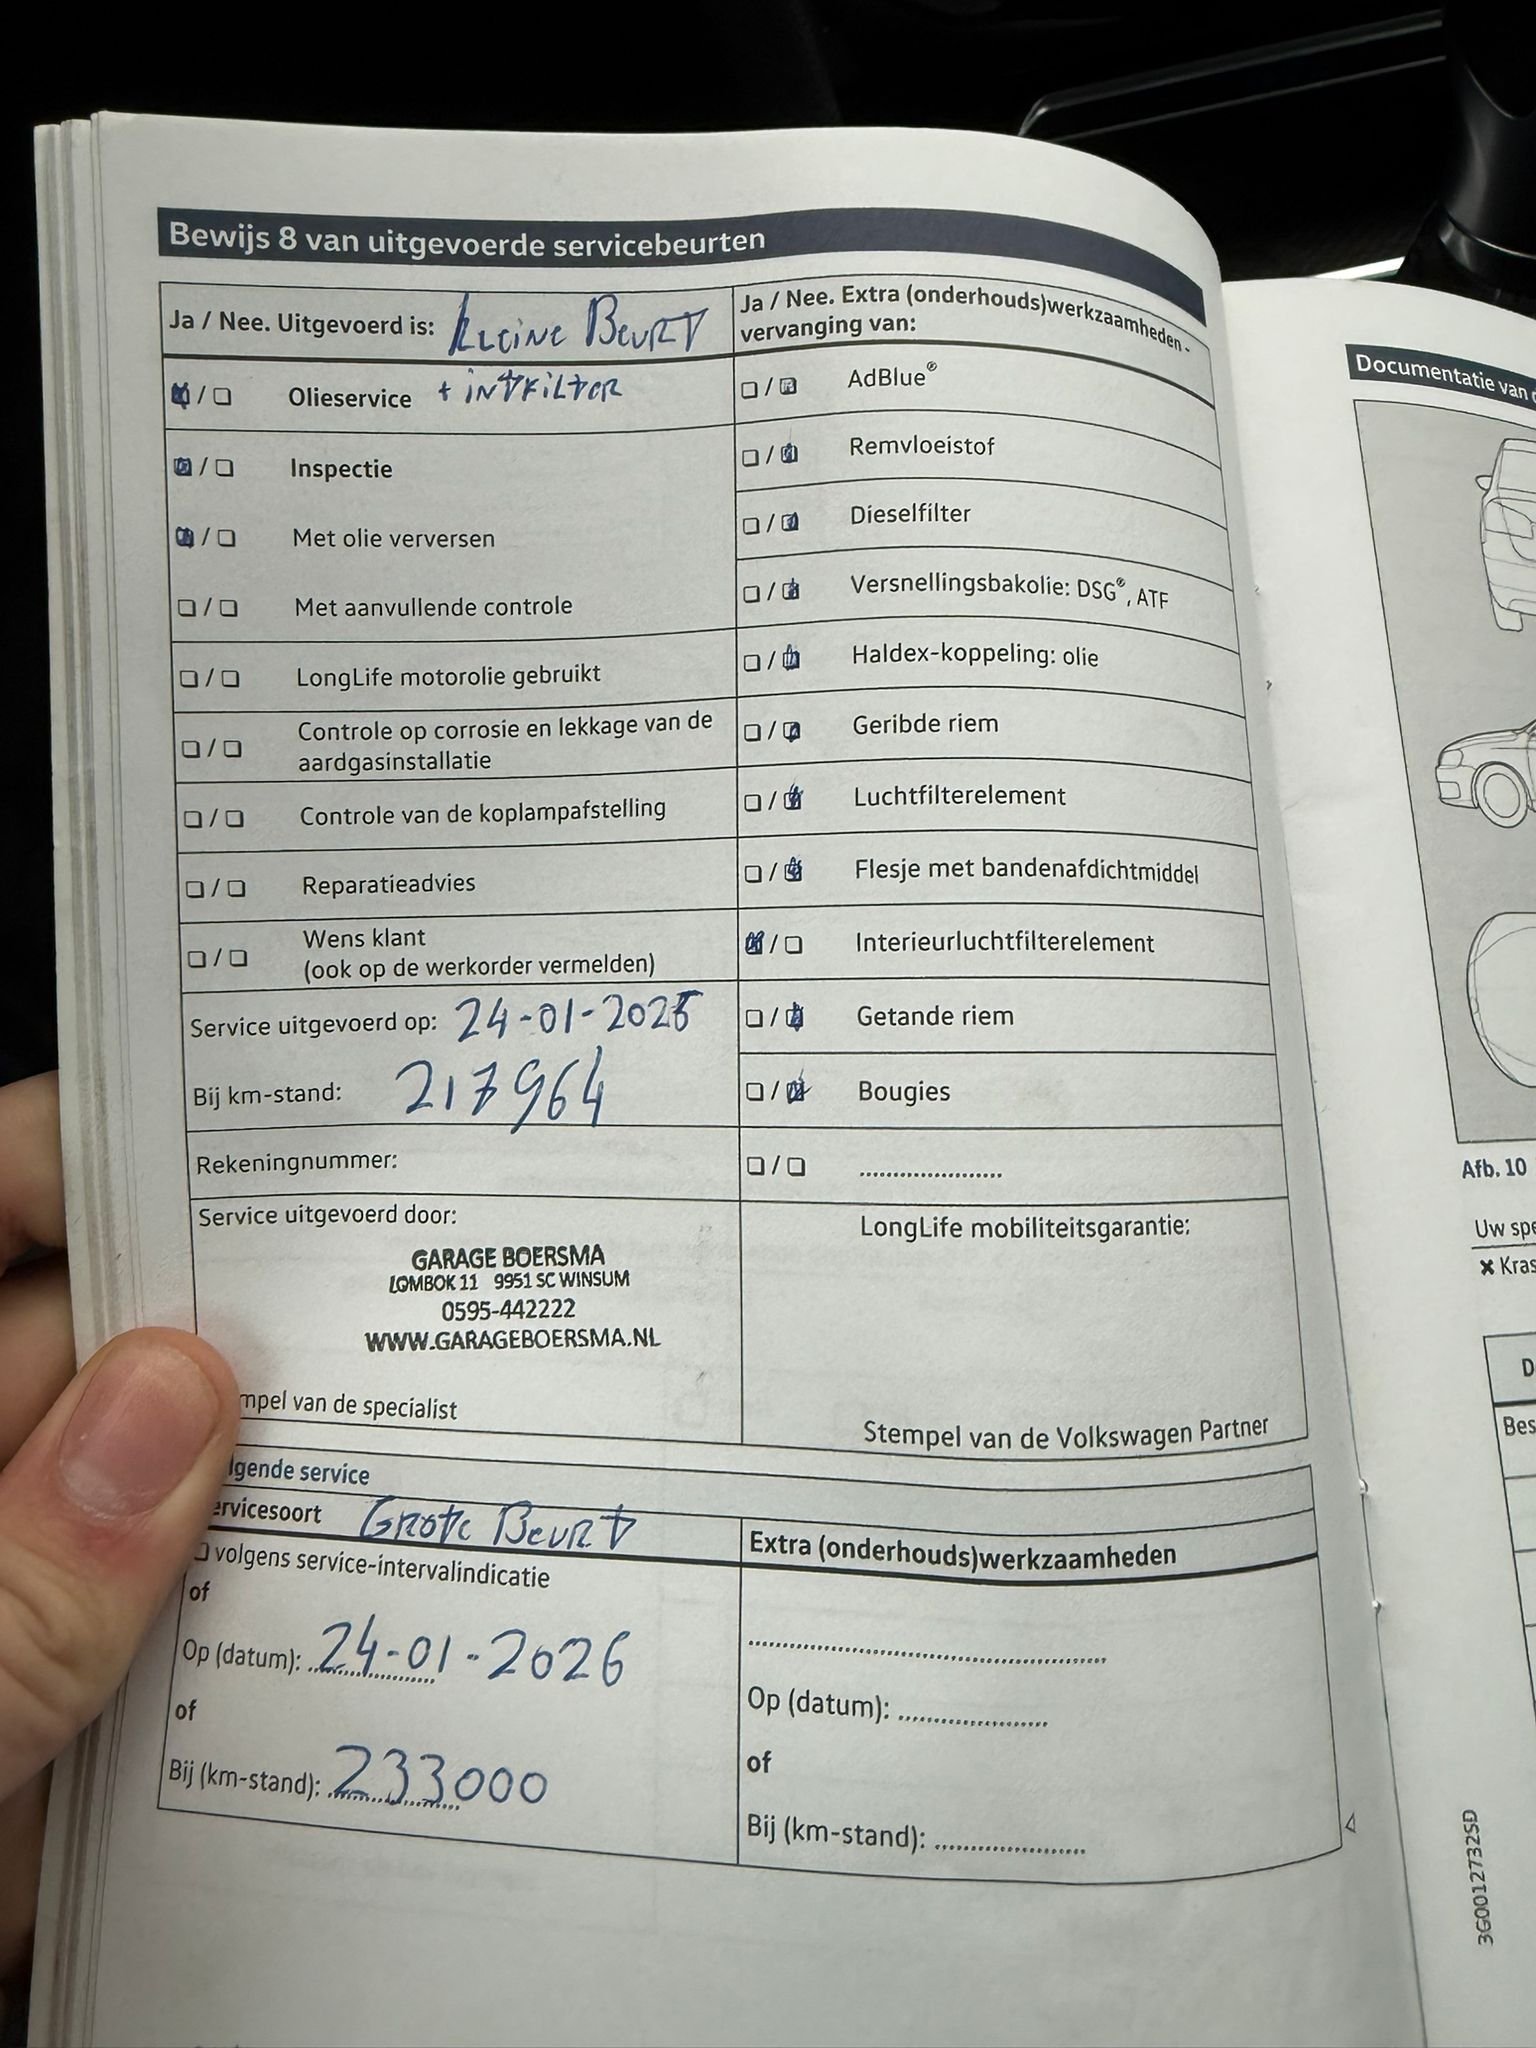 Bewijs 8 van uitgevoerde servicebeurten
Ja / Nee. Uitgevoerd is: KLEINE BEURT
Olieservice + INTFILTER
Inspectie
Met olie verversen
Met aanvullende controle
LongLife motorolie gebruikt
Controle op corrosie en lekkage van de
aardgasinstallatie
Controle van de koplampafstelling
Reparatieadvies
Wens klant
(ook op de werkorder vermelden)
Service uitgevoerd op: 24-01-2025
Bij km-stand: 217964
Rekeningnummer:
Service uitgevoerd door:
GARAGE BOERSMA
LOMBOK 11 9951 SC WINSUM
0595-442222
WWW.GARAGEBOERSMA.NL
mpel van de specialist
Ja / Nee. Extra (onderhouds)werkzaamheden -
vervanging van:
AdBlue®
Remvloeistof
Dieselfilter
Versnellingsbakolie: DSG®, ATF
Haldex-koppeling: olie
Geribde riem
Luchtfilterelement
Flesje met bandenafdichtmiddel
Interieurluchtfilterelement
Getande riem
Bougies
....................
LongLife mobiliteitsgarantie:
Stempel van de Volkswagen Partner
lgende service
ervicesoort GROTE BEURT
volgens service-intervalindicatie
of
Op (datum): 24-01-2026
of
Bij (km-stand): 233000
Extra (onderhouds)werkzaamheden
Op (datum): ....................
of
Bij (km-stand): ....................
Documentatie van
Afb. 10
Uw spe
✖ Kras
D
Bes
3G0012732SD